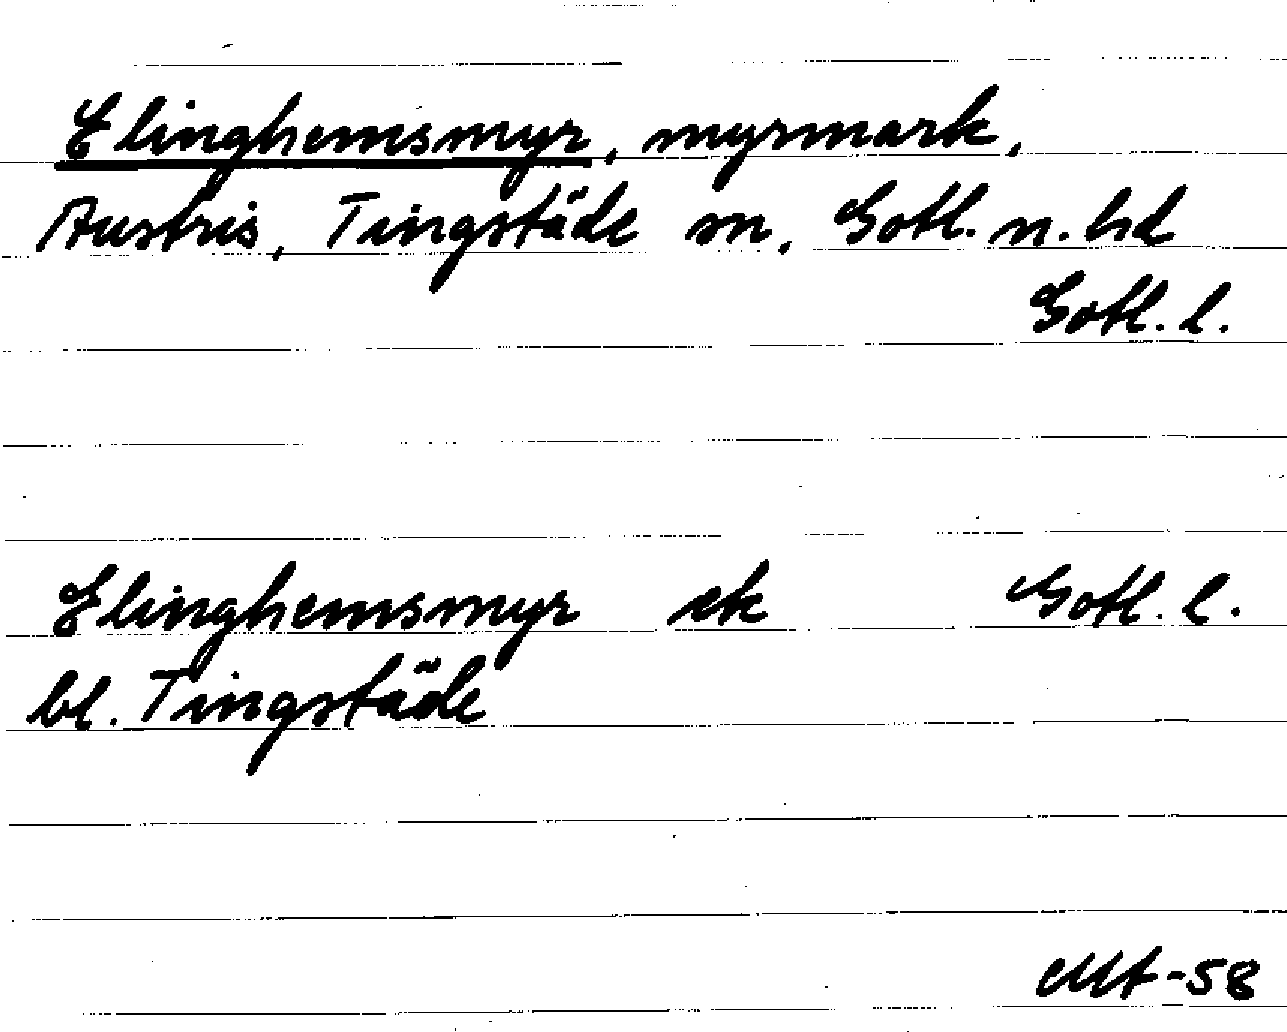 Elinghemsmyr, myrmark,
Austris, Tingstäde sn, Gotl. n. hd
Gotl. l.
Elinghemsmyr ek Gotl. l.
bl. Tingstäde
Mt-58